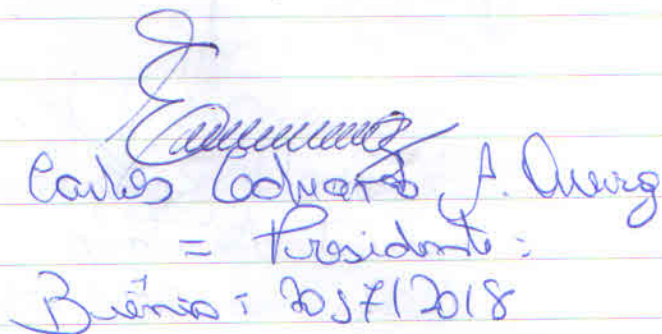 Carlos Eduardo A.
= Presidente =
Biênio: 2017/2018